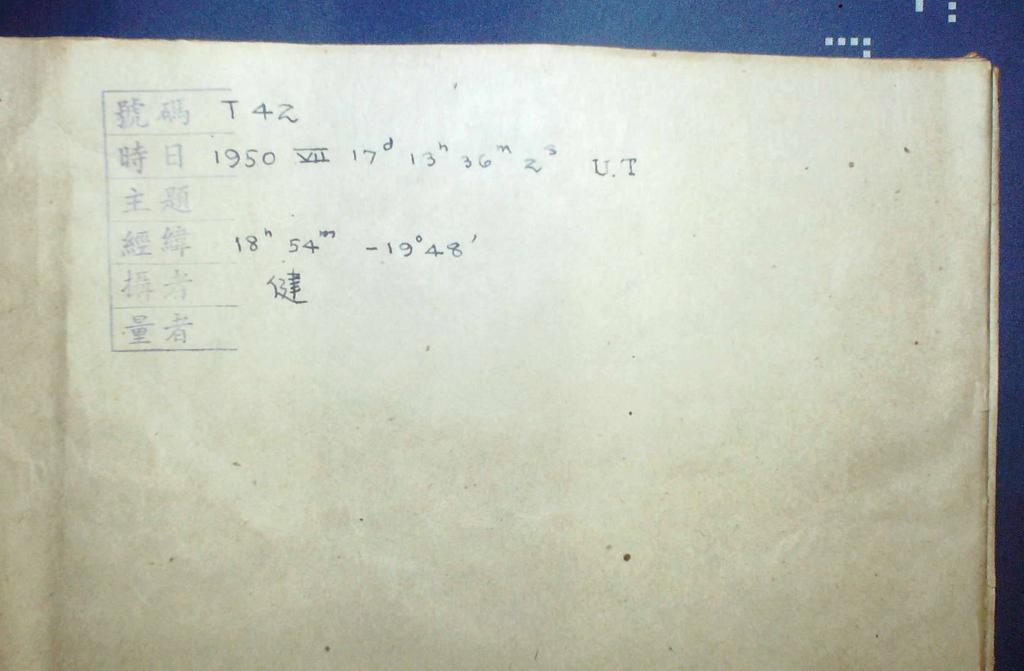 號碼 T 42
時日 1950 VII 17ᵈ 13ʰ 36ᵐ 2ˢ U.T
主題
經緯 18ʰ 54ᵐ -19°48′
攝者 健
量者